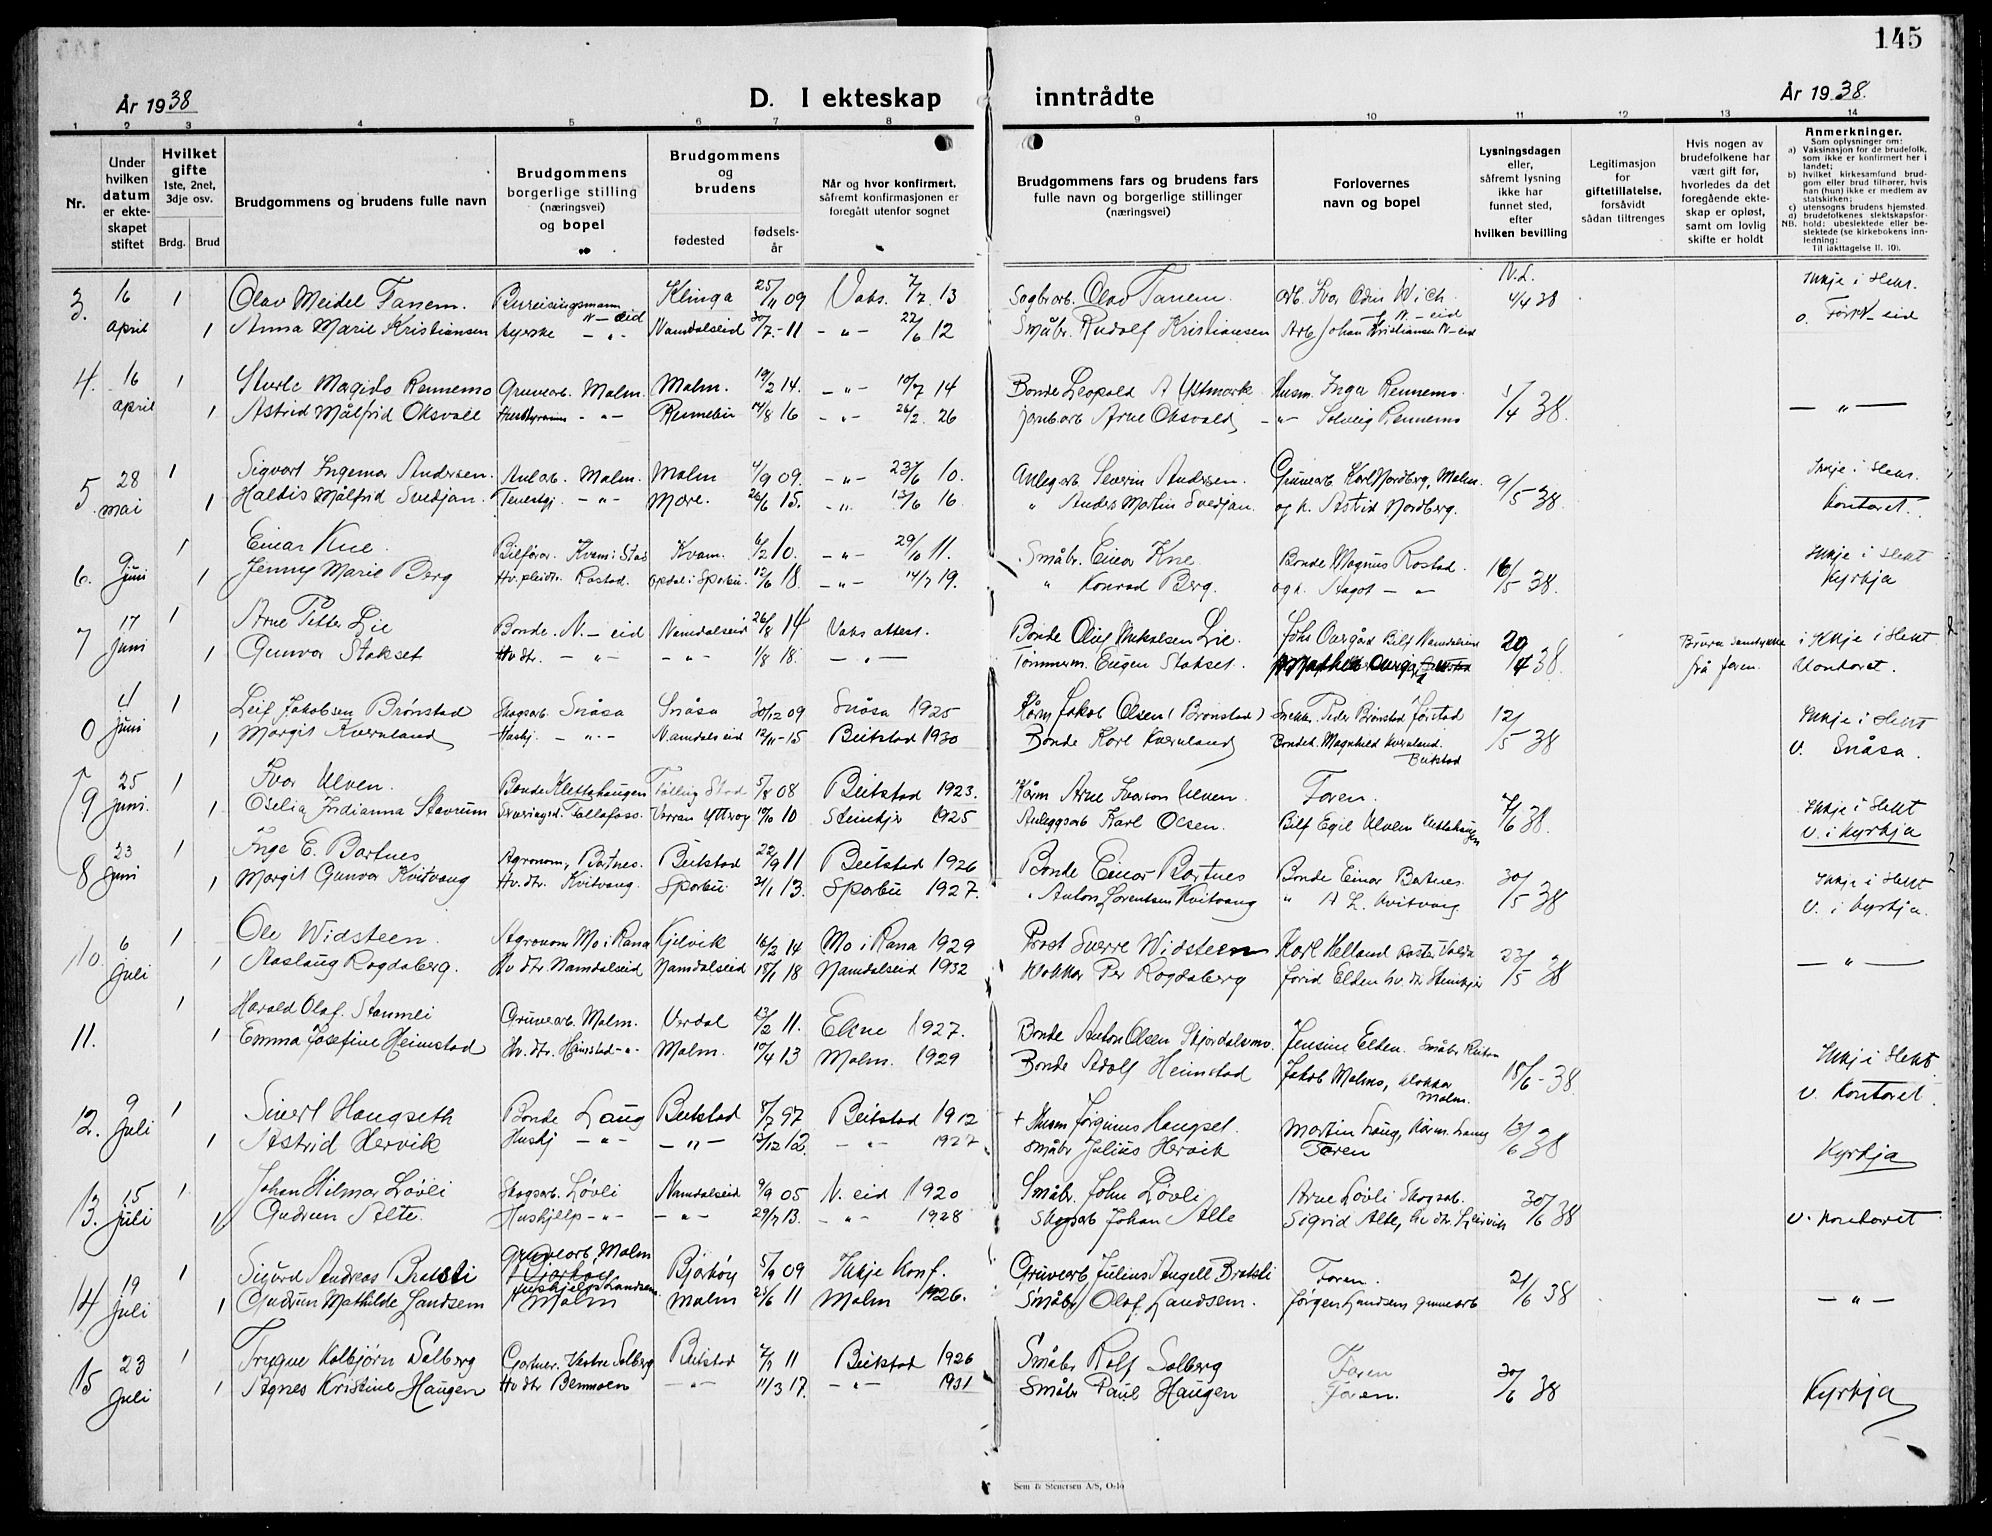 145
År 1938
D. I ekteskap inntrådte
År 1938.
1 2 3 4 5 6 7 8 9 10 11 12 13 14
Nr.
Under hvilken datum er ekteskapet stiftet
Hvilket gifte 1ste, 2net, 3dje osv.
Brdg. Brud
Brudgommens og brudens fulle navn
Brudgommens borgerlige stilling (næringsvei) og bopel
Brudgommens og brudens
fødested
fødselsår
Når og hvor konfirmert, såfremt konfirmasjonen er foregått utenfor sognet
Brudgommens fars og brudens fars fulle navn og borgerlige stillinger (næringsvei)
Forlovernes navn og bopel
Lysningsdagen eller, såfremt lysning ikke har funnet sted, efter hvilken bevilling
Legitimasjon for giftetillatelse, forsåvidt sådan tiltrenges
Hvis nogen av brudefolkene har vært gift før, hvorledes da det foregående ekteskap er opløst, samt om lovlig skifte er holdt
Anmerkninger.
Som oplysninger om:
a) Vaksinasjon for de brudefolk, som ikke er konfirmert her i landet;
b) hvilket kirkesamfund brudgom eller brud tilhører, hvis han (hun) ikke er medlem av statskirken;
c) utensogns brudens hjemsted.
d) brudefolkenes slektskapsforhold: ubeslektede eller beslektede (se kirkebokens innledning:
NB. Til iakttagelse II. 10).
3. 16 1 Olav Meidel Fanem. Bureisingsmann N-eid Klinga 25/11 09 Vaks. 7/7 13 Sagbrarb. Olav Fanem. arb. Ivar Odin Wich. N-eid N.L. 4/4 38 Ikkje i slekt.
april 1 Anna Marie Kristiansen Namdalseid 30/7-11 -"- 22/6 12 Småbr. Rudolf Kristiansen Arb Johan Kristiansen N-eid
4. 16 1 Sturla Magids Rennemo Gruvearb. Malm. Malm. 19/2 14. -"- 10/7 14 Bonde Leopold A Ystmark Husm. Inga Rennemo. 1/4 38.
april 1 Astrid Målfrid Oksvall -"- 14/8 16 -"- 26/2. 26 Jarnbarb Arne Oksvald -"- Solveig Rennemo -"-
5. 28 1 Sigvart Ingemar Andersen. Anl.arb. Malm. Malm 4/9 09. -"- 23/6 10. Anlegsarb Severin Andersen. Gruvearb Karl Nordberg, Malm. 9/5 38. Ikkje i slekt.
mai 1 Haldis Målfrid Svedjan. Tenestgj. -"- More. 26/6 15. -"- 13/6 16 " Anders Martin Svedjan. og h. Astrid Nordberg. Kontoret.
6. 9 1 Einar Kne. Bilførar. Kvam i Stod Kvam. 6/2 10. -"- 29/10 11. Småbr. Einar Kne Bonde Magnus Rostad. 16/5 38. Ikkje i slekt
juni 1 Jenny Marie Berg Rostad. 12/6 18. -"- 14/7 19. " Konrad Berg. og h. Aagot -"- Kyrkja
7 17 1 Arne Petter Lie Bonde. N.-eid Namdalseid 26/8 14 Vaks attest. Bonde Olaf Mikalsen Lie. Johs Aargård Bilf Namdalseid 20/4 38. i Ikkje i slekt
juni 1 Gunvor Stokset Hv dtr. -"- -"- 1/8 18. -"- Tømmerm. Eugen Stokset. frå faren. Kontoret.
0 4 1 Leif Jakobsen Brønstad Skogsarb. Snåsa Snåsa 30/12 09 Snåsa 1925 Kårm Jakob Olsen (Brønstad) Snekk. Peder Brønstad Jørstad 12/5 38 Ikkje i slekt
juni 1 Margit Kvernland Hushj. -"- Namdalseid 12/11-15 Beitstad 1930 Bonde Karl Kvernland Bondek. Magnhild Kvernland. Beitstad v. Snåsa.
9 25 1 Ivar Ulven. Bonde Klettahaugen Følling Stod 5/8 08 Beitstad 1923. Kårm Arne Ivarson Ulven. Faren. 7/6 38. Ikkje i slekt
juni. 1 Oselia Indianna Stavrum Follafoss. Verran Ytterøy 10/10 10 Steinkjer 1925 Anleggsarb Karl Olsen. Bilf Egil Ulven Klettahaugen v. i Kyrkja
8 23 1 Inge E. Bartnes Agronom, Bartnes. Beitstad 22/9 11 Beitstad 1926 Bonde Einar Bartnes Bonde Einar Bartnes. 30/5 38 Ikkje i slekt
juni 1 Margit Gunvor Kvitvang Hv. dtr. Kvitvang. Sparbu 21/1 13. Sparbu 1927. " Anton Lorentsen Kvitvang " A L. Kvitvang. v. i Kyrkja.
10. 6 1 Ole Widsteen. Agronom Mo i Rana Kjelvik 16/2 14 Mo i Rana 1929 Prost Sverre Widsteen Karl Helland 23/5 38
juli 1 Aaslaug Rogdaberg. Hv dtr. Namdalseid Namdalseid 18/1 18 Namdalseid 1932 Klokkar Per Rogdaberg Jorid Elden hv. dtr Steinkjer -"-
11. 1 Harald Olaf. Stamnli Gruvearb. Malm. Verdal 13/2 11. Ekne 1927. Bonde Anton Olsen Skjørdalsmo. Jensine Elden. Ikkje i slekt.
1 Emma Josefine Heimstad Hv. dtr. Heimstad -"- Malm. 10/4 13 Malm. 1929 Bonde Adolf Heimstad Jakob Malmo, klokkar Malm. 18/6-38 v. Kontoret.
12. 9 1 Sivert Haugseth Bonde Laug Beitstad 8/7 97 Beitstad 1912 + Husm Jørginus Haugset. Martin Laug, Kårm. Laug 13/6 38
juli 1 Astrid Hervik Hushj -"- -"- -"- 1927 Småbr Julius Hervik Faren Kyrkja
13. 15 1 Johan Hilmar Løvli Skogsarb. Løvli Namdalseid 9/9 05 N. eid 1920 Småbr. John Løvli Arne Løvli Skogsarb. 30/6 38
juli 1 Gudrun Alte. Hushjelp -"- -"- 29/7 13. -"- 1928 Skogsarb Johan Alte Sigrid Alte, hv dtr. v. Kontoret
14 19 1 Sigurd Andreas Bratsti Gruvearb. Malm Bjarkøy Bjarkøy 5/9 09 Ikkje konf. Gruvearb Julius Angell Bratsti Faren. 21/6 38
juli 1 Gudrun Mathilde Landsem Hushjelp Landsem Malm Malm 25/6 11 Malm 1926. Småbr Olaf Landsem. Jørgen Landsem gruvearb -"-
15 23 1 Trygve Kolbjørn Solberg Gartner. Vestre Solberg Beitstad 7/7 11 Beitstad 1926 Småbr Rolf Solberg Faren 20/6 38
juli 1 Agnes Kristine Haugen Hv dtr Benmoen -"- 11/3 17. -"- 1931 Småbr Paul Haugen Faren. Kyrkja
Sem & Stenersen A/S, Oslo